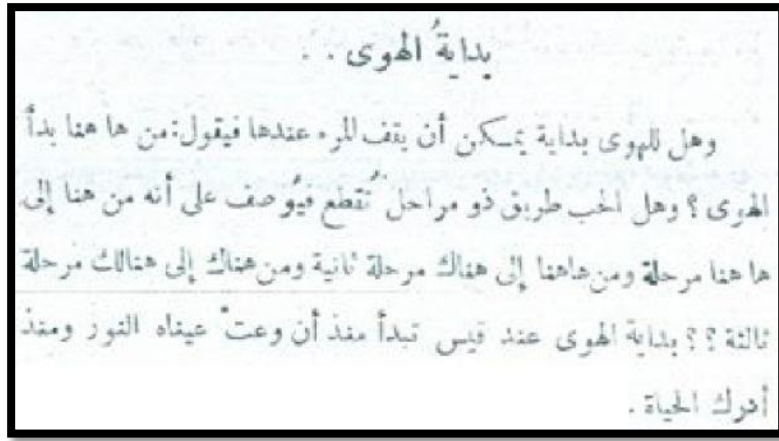 بدايةُ الهوى . .
وهل للهوى بداية يمكن أن يقف المرء عندها فيقول: من ها هنا بدأ
الهوى ؟ وهل الحب طريق ذو مراحل تُقطع فيُوصف على أنه من هنا إلى
ها هنا مرحلة ومن هاهنا إلى هناك مرحلة ثانية ومن هناك إلى هنالك مرحلة
ثالثة ؟ ؟ بداية الهوى عند قيس تبدأ منذ أن وعتْ عيناه النور ومنذ
أدرك الحياة .